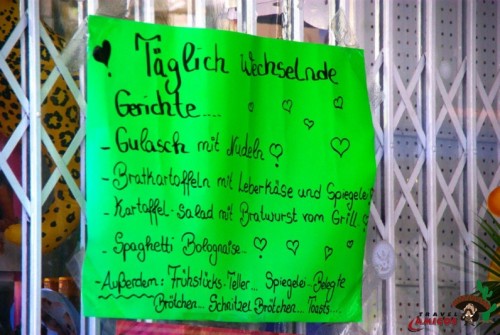 Täglich Wechselnde
Gerichte....
- Gulasch mit Nudeln
- Bratkartoffeln mit Leberkäse und Spiegelei
- Kartoffel-Salad mit Bratwurst vom Grill
- Spaghetti Bolognaise..
- Außerdem: Frühstücks-Teller... Spiegelei-Belegte
Brötchen... Schnitzel Brötchen... Toasts....
TRAVEL